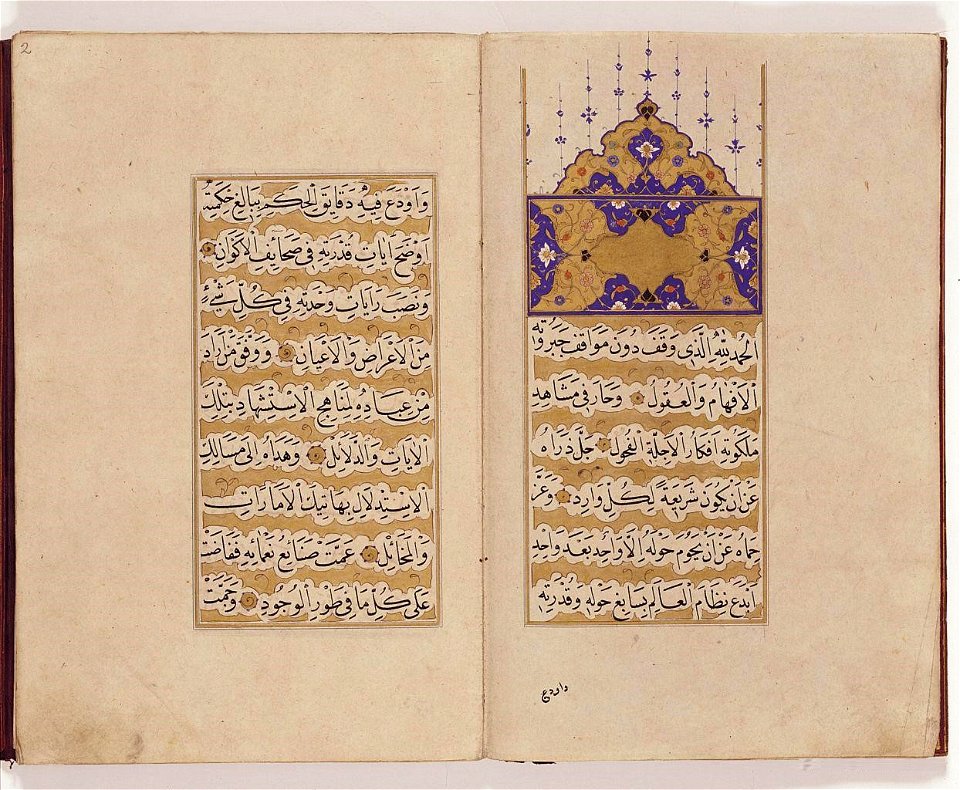 اَلْحمد للّٰهِ الَّذى وَقَفَ دُونَ مَوَاقِفِ جَبَرُوتِهِ
الْاَفْهَامُ وَالْعُقُولُ وَحَارَ فى مَشَاهِدِ
مَلَكُوتِهِ اَفْكَارُ الْاَجِلَّةِ الْفُحُولِ جَلَّ ذرَاه
عَنْ اَنْ يَكُونَ شَرِيعَةً لِكُلِّ وَارِدٍ وَعَزَّ
حِمَاه عَنْ اَنْ يَحُومَ حَوْلَهُ اِلَّا وَاحِد بَعْدَ وَاحِد
اَبْدَعَ نِظَامَ الْعَالَمِ بِسَابِغِ حَوْلِهِ وَقُدْرَتِهِ
واودع
2
وَاَوْدَعَ فِيهِ دَقَايِقَ الْحِكَمِ بِبَالِغِ حِكْمَتِهِ
اَوْضَحَ اٰيَاتِ قُدْرَتِهِ فى صَحَائِفِ الْاَكْوَانِ
وَنَصَبَ رَايَاتِ وَحْدَتِهِ فى كُلِّ شَىْءٍ
مِنَ الْاَعْرَاضِ وَالْاَعْيَانِ وَوَفَّقَ مَنْ اَرَادَ
مِنْ عِبَادِهِ لِمَنَاهِجِ الْاِسْتِشْهَادِ بِتِلْكَ
الْاٰيَاتِ وَالدَّلَائِلِ وَهَدَاهُ اِلى مَسَالِكِ
الْاِسْتِدْلَالِ بِهَاتِيكَ الْاَمَارَاتِ
وَالْمَخَائِلِ عَمَّتْ صَنَائِعُ نَعْمَائِهِ فَفَاضَتْ
عَلى كُلِّ مَا فى طَوْرِ الْوُجُودِ وَجَمَّتْ